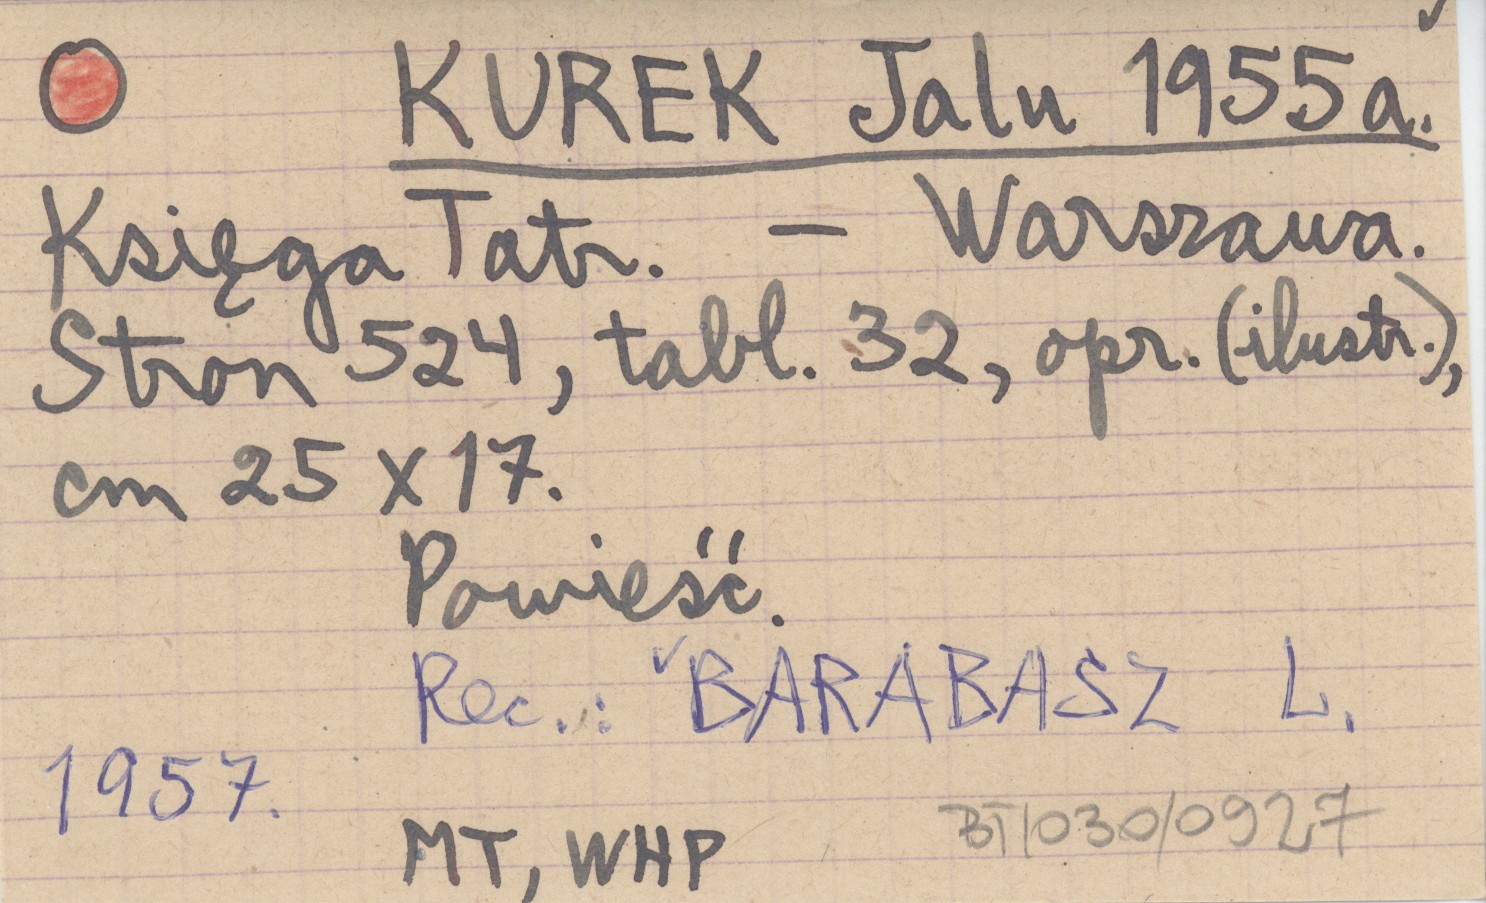 KUREK Jalu 1955a.
Księga Tatr. – Warszawa.
Stron 524, tabl. 32, opr. (ilustr.),
cm 25 x 17.
Powieść.
Rec.: BARABASZ L.
1957.
MT, WHP
BT/030/0927